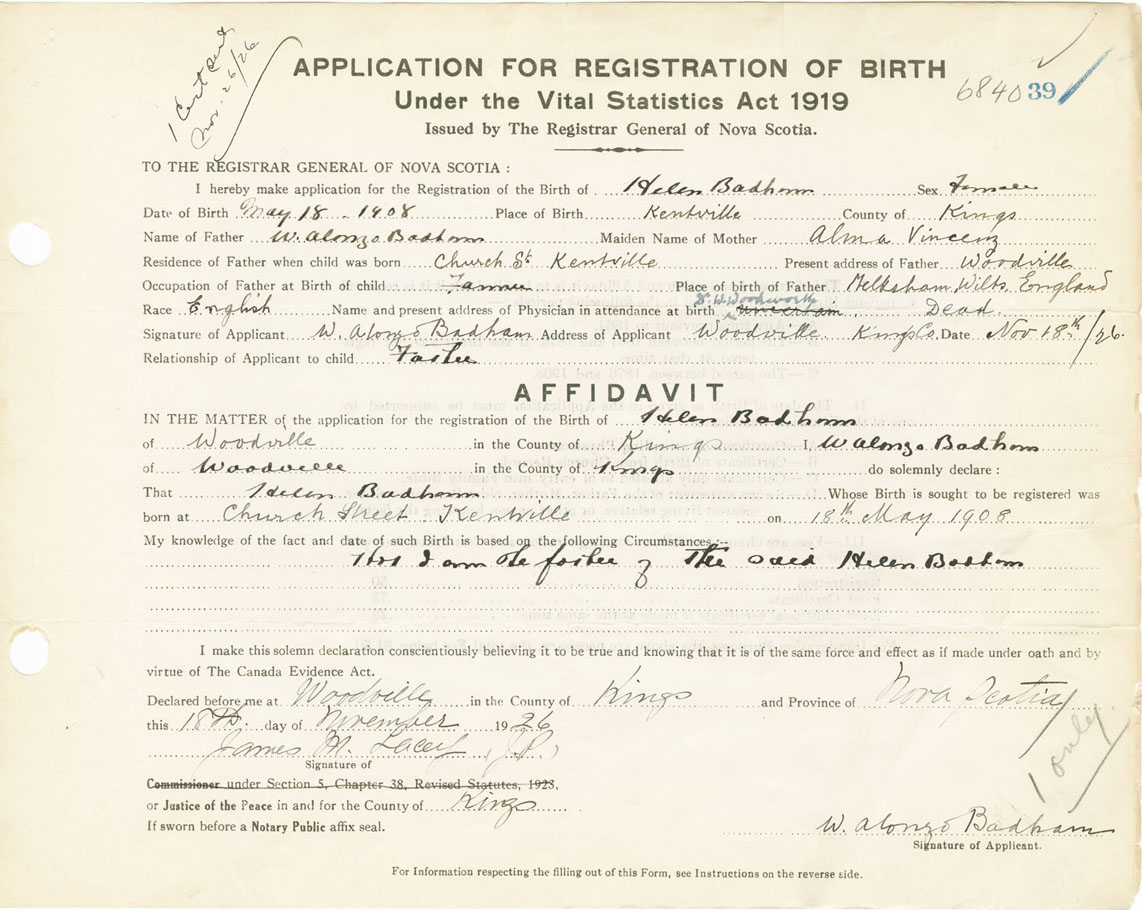 1 Cert sent
Nov. 26/26
APPLICATION FOR REGISTRATION OF BIRTH
6840 39
Under the Vital Statistics Act 1919
Issued by The Registrar General of Nova Scotia.
TO THE REGISTRAR GENERAL OF NOVA SCOTIA :
I hereby make application for the Registration of the Birth of Helen Badham Sex Female
Date of Birth May 18 - 1908 Place of Birth Kentville County of Kings
Name of Father W. Alonzo Badham Maiden Name of Mother Alma Vincent
Residence of Father when child was born Church St Kentville Present address of Father Woodville
Occupation of Father at Birth of child Farmer Place of birth of Father Melksham, Wilts, England
Dr. W. Woodworth
Race English Name and present address of Physician in attendance at birth uncertain Dead
Signature of Applicant W. Alonzo Badham Address of Applicant Woodville Kings Co. Date Nov 18th/26
Relationship of Applicant to child Father
AFFIDAVIT
IN THE MATTER of the application for the registration of the Birth of Helen Badham
of Woodville in the County of Kings I, W Alonzo Badham
of Woodville in the County of Kings do solemnly declare :
That Helen Badham Whose Birth is sought to be registered was
born at Church Street Kentville on 18th May 1908
My knowledge of the fact and date of such Birth is based on the following Circumstances :--
That I am the father of the said Helen Badham
I make this solemn declaration conscientiously believing it to be true and knowing that it is of the same force and effect as if made under oath and by
virtue of The Canada Evidence Act.
Declared before me at Woodville in the County of Kings and Province of Nova Scotia
this 18th day of November 1926
James M. Lacey (J.P.)
Signature of
Commissioner under Section 5, Chapter 38, Revised Statutes, 1923.
or Justice of the Peace in and for the County of Kings
1 only
If sworn before a Notary Public affix seal.
W. Alonzo Badham
Signature of Applicant.
For Information respecting the filling out of this Form, see Instructions on the reverse side.